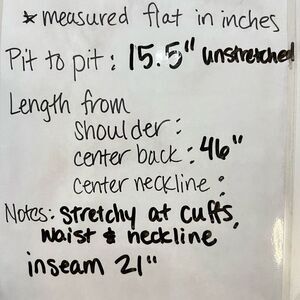 * measured flat in inches
Pit to pit: 15.5" unstretched
Length from
shoulder:
center back: 46"
center neckline:
Notes: stretchy at cuffs,
waist & neckline
inseam 21"